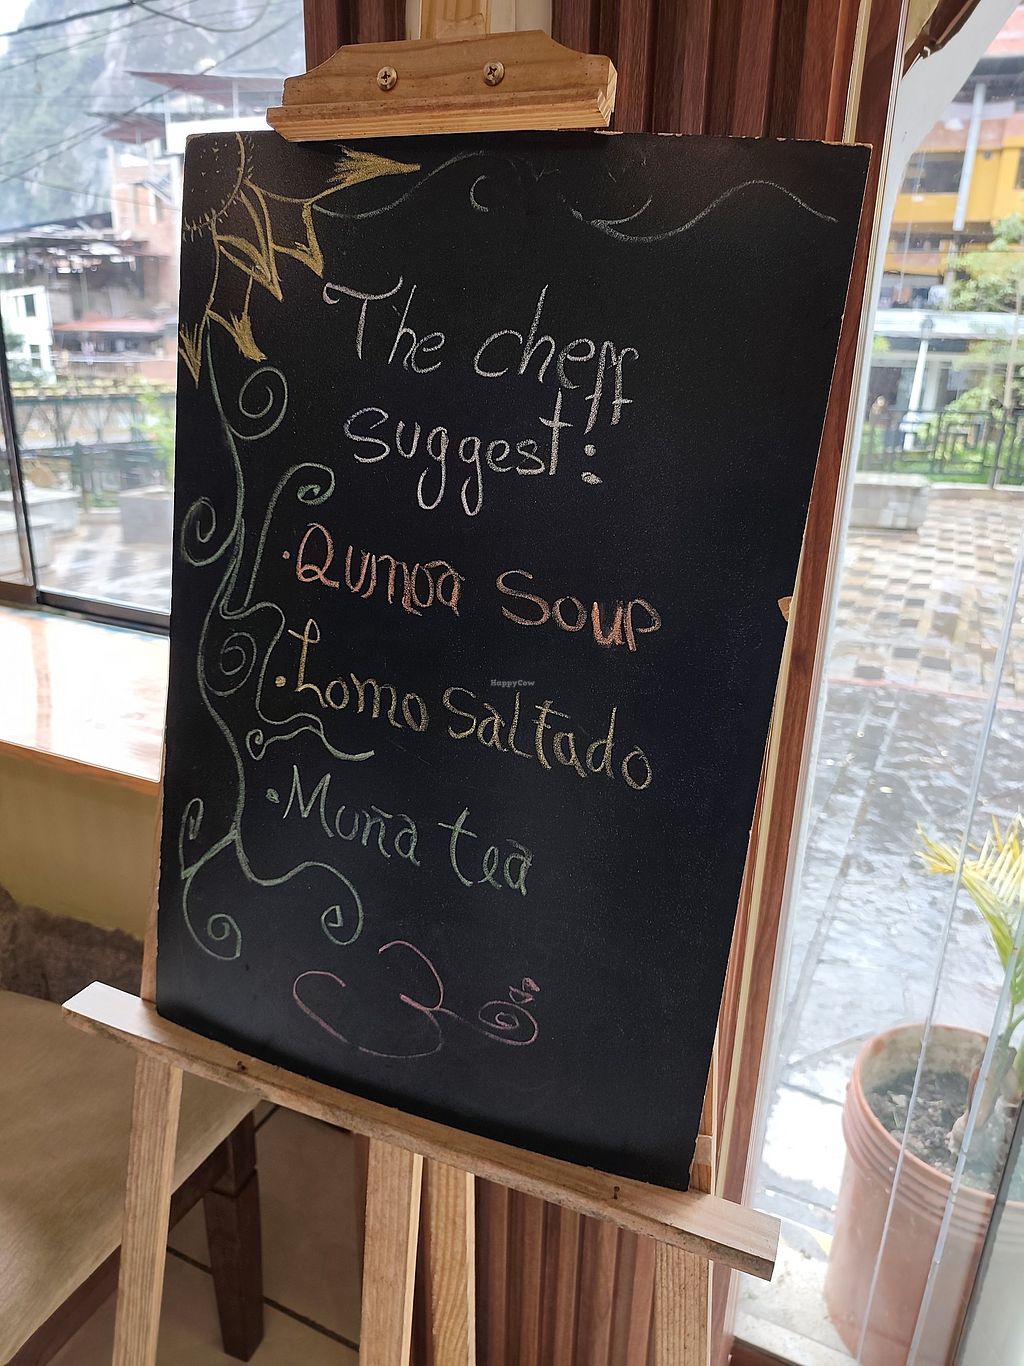 The cheff
suggest:
·Quinoa Soup
·Lomo Saltado
·Muña tea
HappyCow